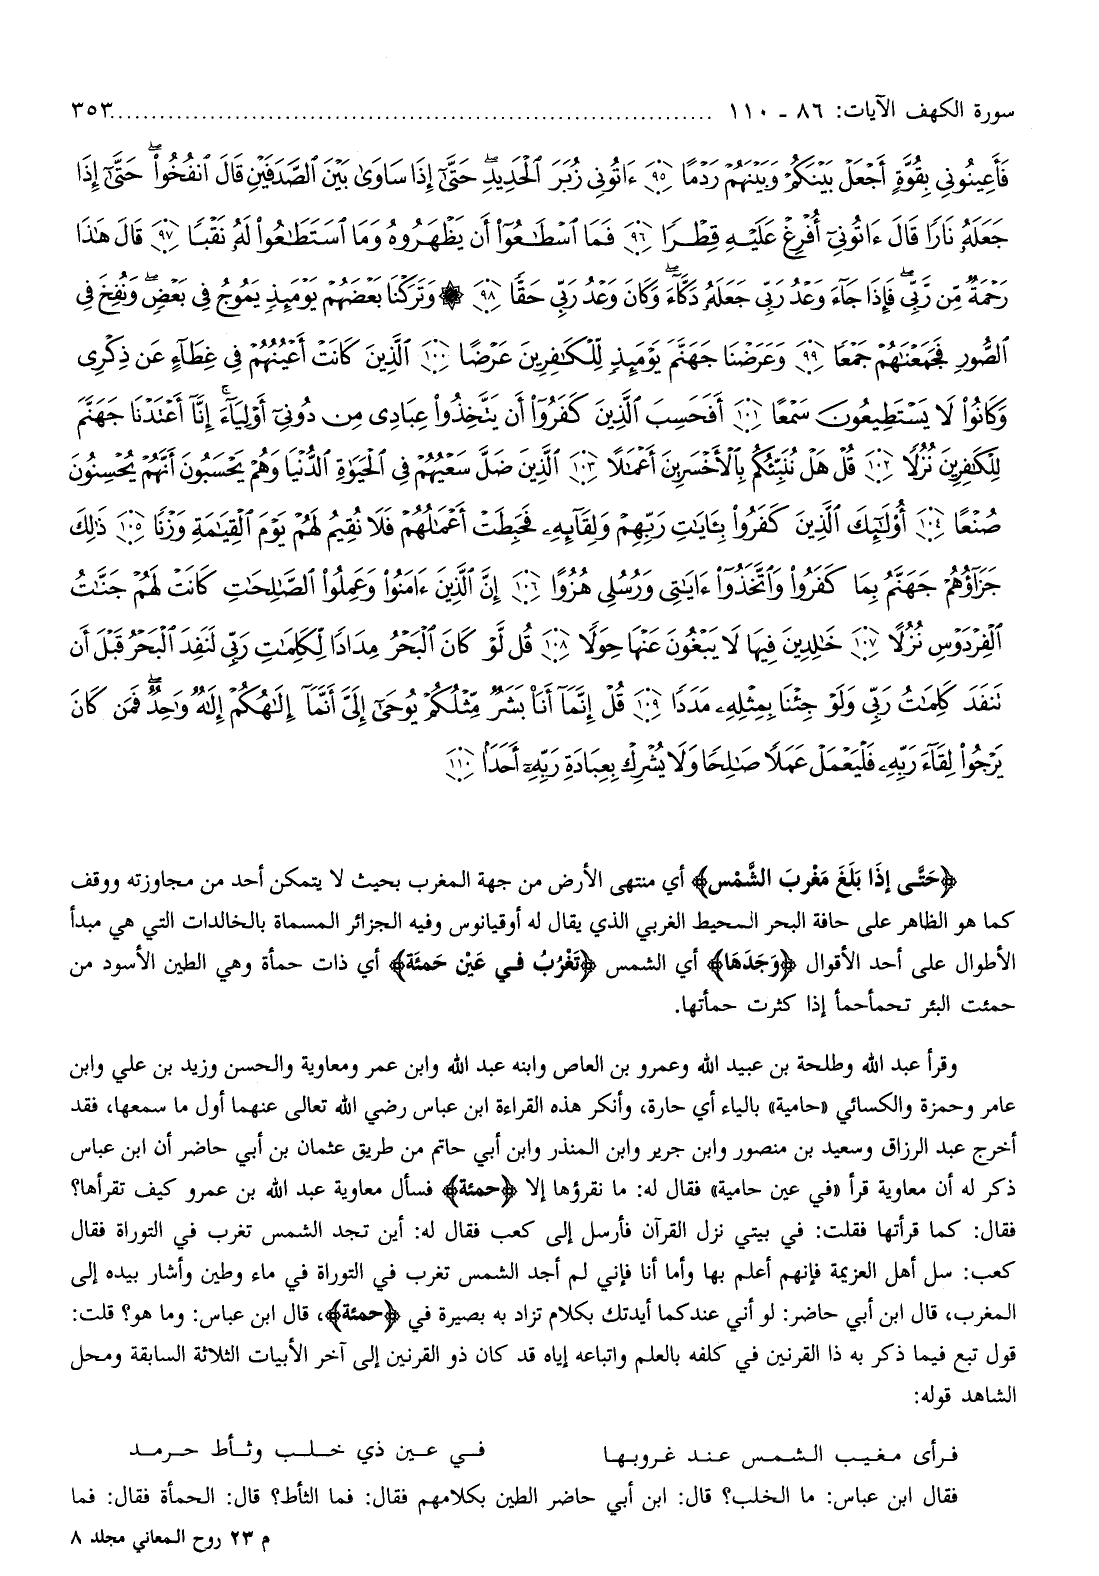 سورة الكهف الآيات: ٨٦ ـ ١١٠ ........................................................................ ٣٥٣
فَأَعِينُونِي بِقُوَّةٍ أَجْعَلْ بَيْنَكُمْ وَبَيْنَهُمْ رَدْمًا ﴿٩٥﴾ ءَاتُونِي زُبَرَ ٱلْحَدِيدِۖ حَتَّىٰٓ إِذَا سَاوَىٰ بَيْنَ ٱلصَّدَفَيْنِ قَالَ ٱنفُخُوا۟ۖ حَتَّىٰٓ إِذَا
جَعَلَهُۥ نَارًا قَالَ ءَاتُونِىٓ أُفْرِغْ عَلَيْهِ قِطْرًا ﴿٩٦﴾ فَمَا ٱسْطَـٰعُوٓا۟ أَن يَظْهَرُوهُ وَمَا ٱسْتَطَـٰعُوا۟ لَهُۥ نَقْبًا ﴿٩٧﴾ قَالَ هَـٰذَا
رَحْمَةٌ مِّن رَّبِّىۖ فَإِذَا جَآءَ وَعْدُ رَبِّى جَعَلَهُۥ دَكَّآءَۖ وَكَانَ وَعْدُ رَبِّى حَقًّا ﴿٩٨﴾ ۞ وَتَرَكْنَا بَعْضَهُمْ يَوْمَئِذٍ يَمُوجُ فِى بَعْضٍۖ وَنُفِخَ فِى
ٱلصُّورِ فَجَمَعْنَـٰهُمْ جَمْعًا ﴿٩٩﴾ وَعَرَضْنَا جَهَنَّمَ يَوْمَئِذٍ لِّلْكَـٰفِرِينَ عَرْضًا ﴿١٠٠﴾ ٱلَّذِينَ كَانَتْ أَعْيُنُهُمْ فِى غِطَآءٍ عَن ذِكْرِى
وَكَانُوا۟ لَا يَسْتَطِيعُونَ سَمْعًا ﴿١٠١﴾ أَفَحَسِبَ ٱلَّذِينَ كَفَرُوٓا۟ أَن يَتَّخِذُوا۟ عِبَادِى مِن دُونِىٓ أَوْلِيَآءَۚ إِنَّآ أَعْتَدْنَا جَهَنَّمَ
لِلْكَـٰفِرِينَ نُزُلًا ﴿١٠٢﴾ قُلْ هَلْ نُنَبِّئُكُم بِٱلْأَخْسَرِينَ أَعْمَـٰلًا ﴿١٠٣﴾ ٱلَّذِينَ ضَلَّ سَعْيُهُمْ فِى ٱلْحَيَوٰةِ ٱلدُّنْيَا وَهُمْ يَحْسَبُونَ أَنَّهُمْ يُحْسِنُونَ
صُنْعًا ﴿١٠٤﴾ أُو۟لَـٰٓئِكَ ٱلَّذِينَ كَفَرُوا۟ بِـَٔايَـٰتِ رَبِّهِمْ وَلِقَآئِهِۦ فَحَبِطَتْ أَعْمَـٰلُهُمْ فَلَا نُقِيمُ لَهُمْ يَوْمَ ٱلْقِيَـٰمَةِ وَزْنًا ﴿١٠٥﴾ ذَٰلِكَ
جَزَآؤُهُمْ جَهَنَّمُ بِمَا كَفَرُوا۟ وَٱتَّخَذُوٓا۟ ءَايَـٰتِى وَرُسُلِى هُزُوًا ﴿١٠٦﴾ إِنَّ ٱلَّذِينَ ءَامَنُوا۟ وَعَمِلُوا۟ ٱلصَّـٰلِحَـٰتِ كَانَتْ لَهُمْ جَنَّـٰتُ
ٱلْفِرْدَوْسِ نُزُلًا ﴿١٠٧﴾ خَـٰلِدِينَ فِيهَا لَا يَبْغُونَ عَنْهَا حِوَلًا ﴿١٠٨﴾ قُل لَّوْ كَانَ ٱلْبَحْرُ مِدَادًا لِّكَلِمَـٰتِ رَبِّى لَنَفِدَ ٱلْبَحْرُ قَبْلَ أَن
تَنفَدَ كَلِمَـٰتُ رَبِّى وَلَوْ جِئْنَا بِمِثْلِهِۦ مَدَدًا ﴿١٠٩﴾ قُلْ إِنَّمَآ أَنَا۠ بَشَرٌ مِّثْلُكُمْ يُوحَىٰٓ إِلَىَّ أَنَّمَآ إِلَـٰهُكُمْ إِلَـٰهٌ وَٰحِدٌۖ فَمَن كَانَ
يَرْجُوا۟ لِقَآءَ رَبِّهِۦ فَلْيَعْمَلْ عَمَلًا صَـٰلِحًا وَلَا يُشْرِكْ بِعِبَادَةِ رَبِّهِۦٓ أَحَدًۢا ﴿١١٠﴾
﴿حَتَّى إِذَا بَلَغَ مَغْرِبَ الشَّمْسِ﴾ أي منتهى الأرض من جهة المغرب بحيث لا يتمكن أحد من مجاوزته ووقف
كما هو الظاهر على حافة البحر المحيط الغربي الذي يقال له أوقيانوس وفيه الجزائر المسماة بالخالدات التي هي مبدأ
الأطوال على أحد الأقوال ﴿وَجَدَهَا﴾ أي الشمس ﴿تَغْرُبُ في عَيْن حَمِئَة﴾ أي ذات حمأة وهي الطين الأسود من
حمئت البئر تحمأحمأ إذا كثرت حمأتها.
وقرأ عبد الله وطلحة بن عبيد الله وعمرو بن العاص وابنه عبد الله وابن عمر ومعاوية والحسن وزيد بن علي وابن
عامر وحمزة والكسائي «حامية» بالياء أي حارة، وأنكر هذه القراءة ابن عباس رضي الله تعالى عنهما أول ما سمعها، فقد
أخرج عبد الرزاق وسعيد بن منصور وابن جرير وابن المنذر وابن أبي حاتم من طريق عثمان بن أبي حاضر أن ابن عباس
ذكر له أن معاوية قرأ «في عين حامية» فقال له: ما نقرؤها إلا ﴿حمئة﴾ فسأل معاوية عبد الله بن عمرو كيف تقرأها؟
فقال: كما قرأتها فقلت: في بيتي نزل القرآن فأرسل إلى كعب فقال له: أين تجد الشمس تغرب في التوراة فقال
كعب: سل أهل العزيمة فإنهم أعلم بها وأما أنا فإني لم أجد الشمس تغرب في التوراة في ماء وطين وأشار بيده إلى
المغرب، قال ابن أبي حاضر: لو أني عندكما أيدتك بكلام تزاد به بصيرة في ﴿حمئة﴾، قال ابن عباس: وما هو؟ قلت:
قول تبع فيما ذكر به ذا القرنين في كلفه بالعلم واتباعه إياه قد كان ذو القرنين إلى آخر الأبيات الثلاثة السابقة ومحل
الشاهد قوله:
فرأى مغيب الشمس عند غروبها    في عين ذي خلب وثأط حرمد
فقال ابن عباس: ما الخلب؟ قال: ابن أبي حاضر الطين بكلامهم فقال: فما الثأط؟ قال: الحمأة فقال: فما
م ٢٣ روح المعاني مجلد ٨